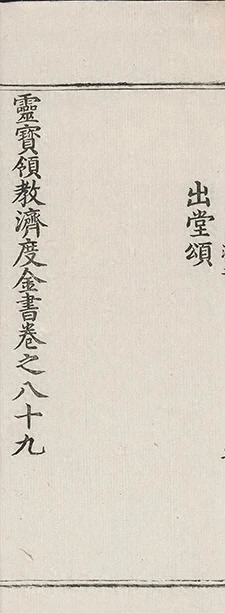 出堂頌
靈寶領教濟度金書卷之八十九